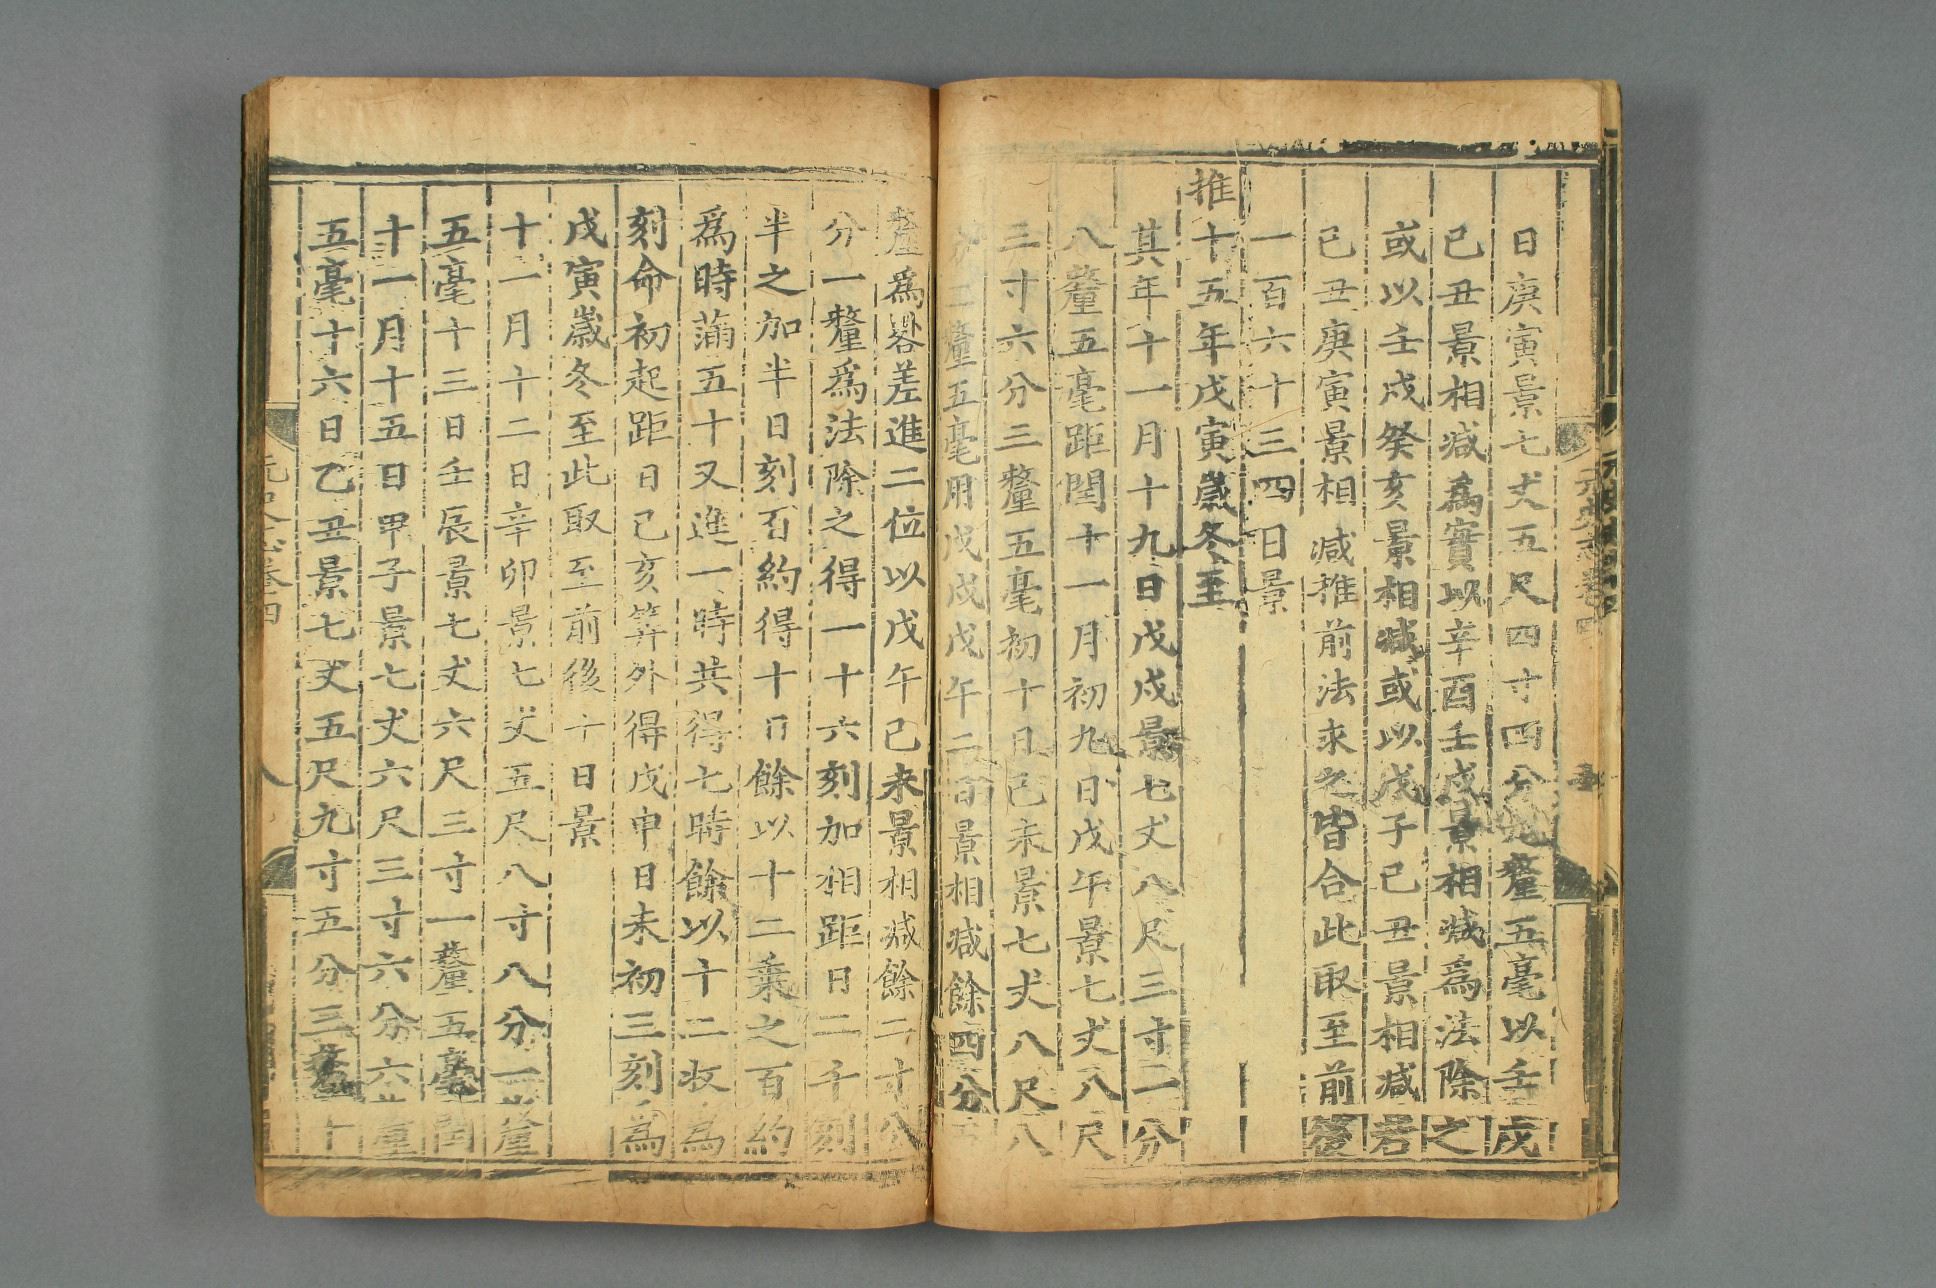 日庚寅景七丈五尺四寸四分九釐五毫以壬戌
己丑景相減爲實以辛酉壬戌景相減爲法除之
或以壬戌癸亥景相減或以戊子己丑景相減若
己丑庚寅景相減推前法求之皆合此取至前後
一百六十三四日景
推十五年戊寅歳冬至
其年十一月十九日戊戌景七丈八尺三寸二分
八釐五毫距閏十一月初九日戊午景七丈八尺
三寸六分三釐五毫初十日己未景七丈八尺八
二釐五毫用戊戌戊午二日景相減餘四分
釐爲晷差進二位以戊午己未景相減餘二寸八
分一釐爲法除之得一十六刻加相距日二千刻
半之加半日刻百約得十日餘以十二乗之百約
爲時蒲五十又進一時共得七時餘以十二收爲
刻命初起距日己亥筭外得戊申日未初三刻爲
戊寅歳冬至此取至前後十日景
十一月十二日辛卯景七丈五尺八寸八分一釐
五毫十三日壬辰景七丈六尺三寸一釐五毫閏
十一月十五日甲子景七丈六尺三寸六分六釐
五毫十六日乙丑景七丈五尺九寸五分三釐十
元史志卷四
八